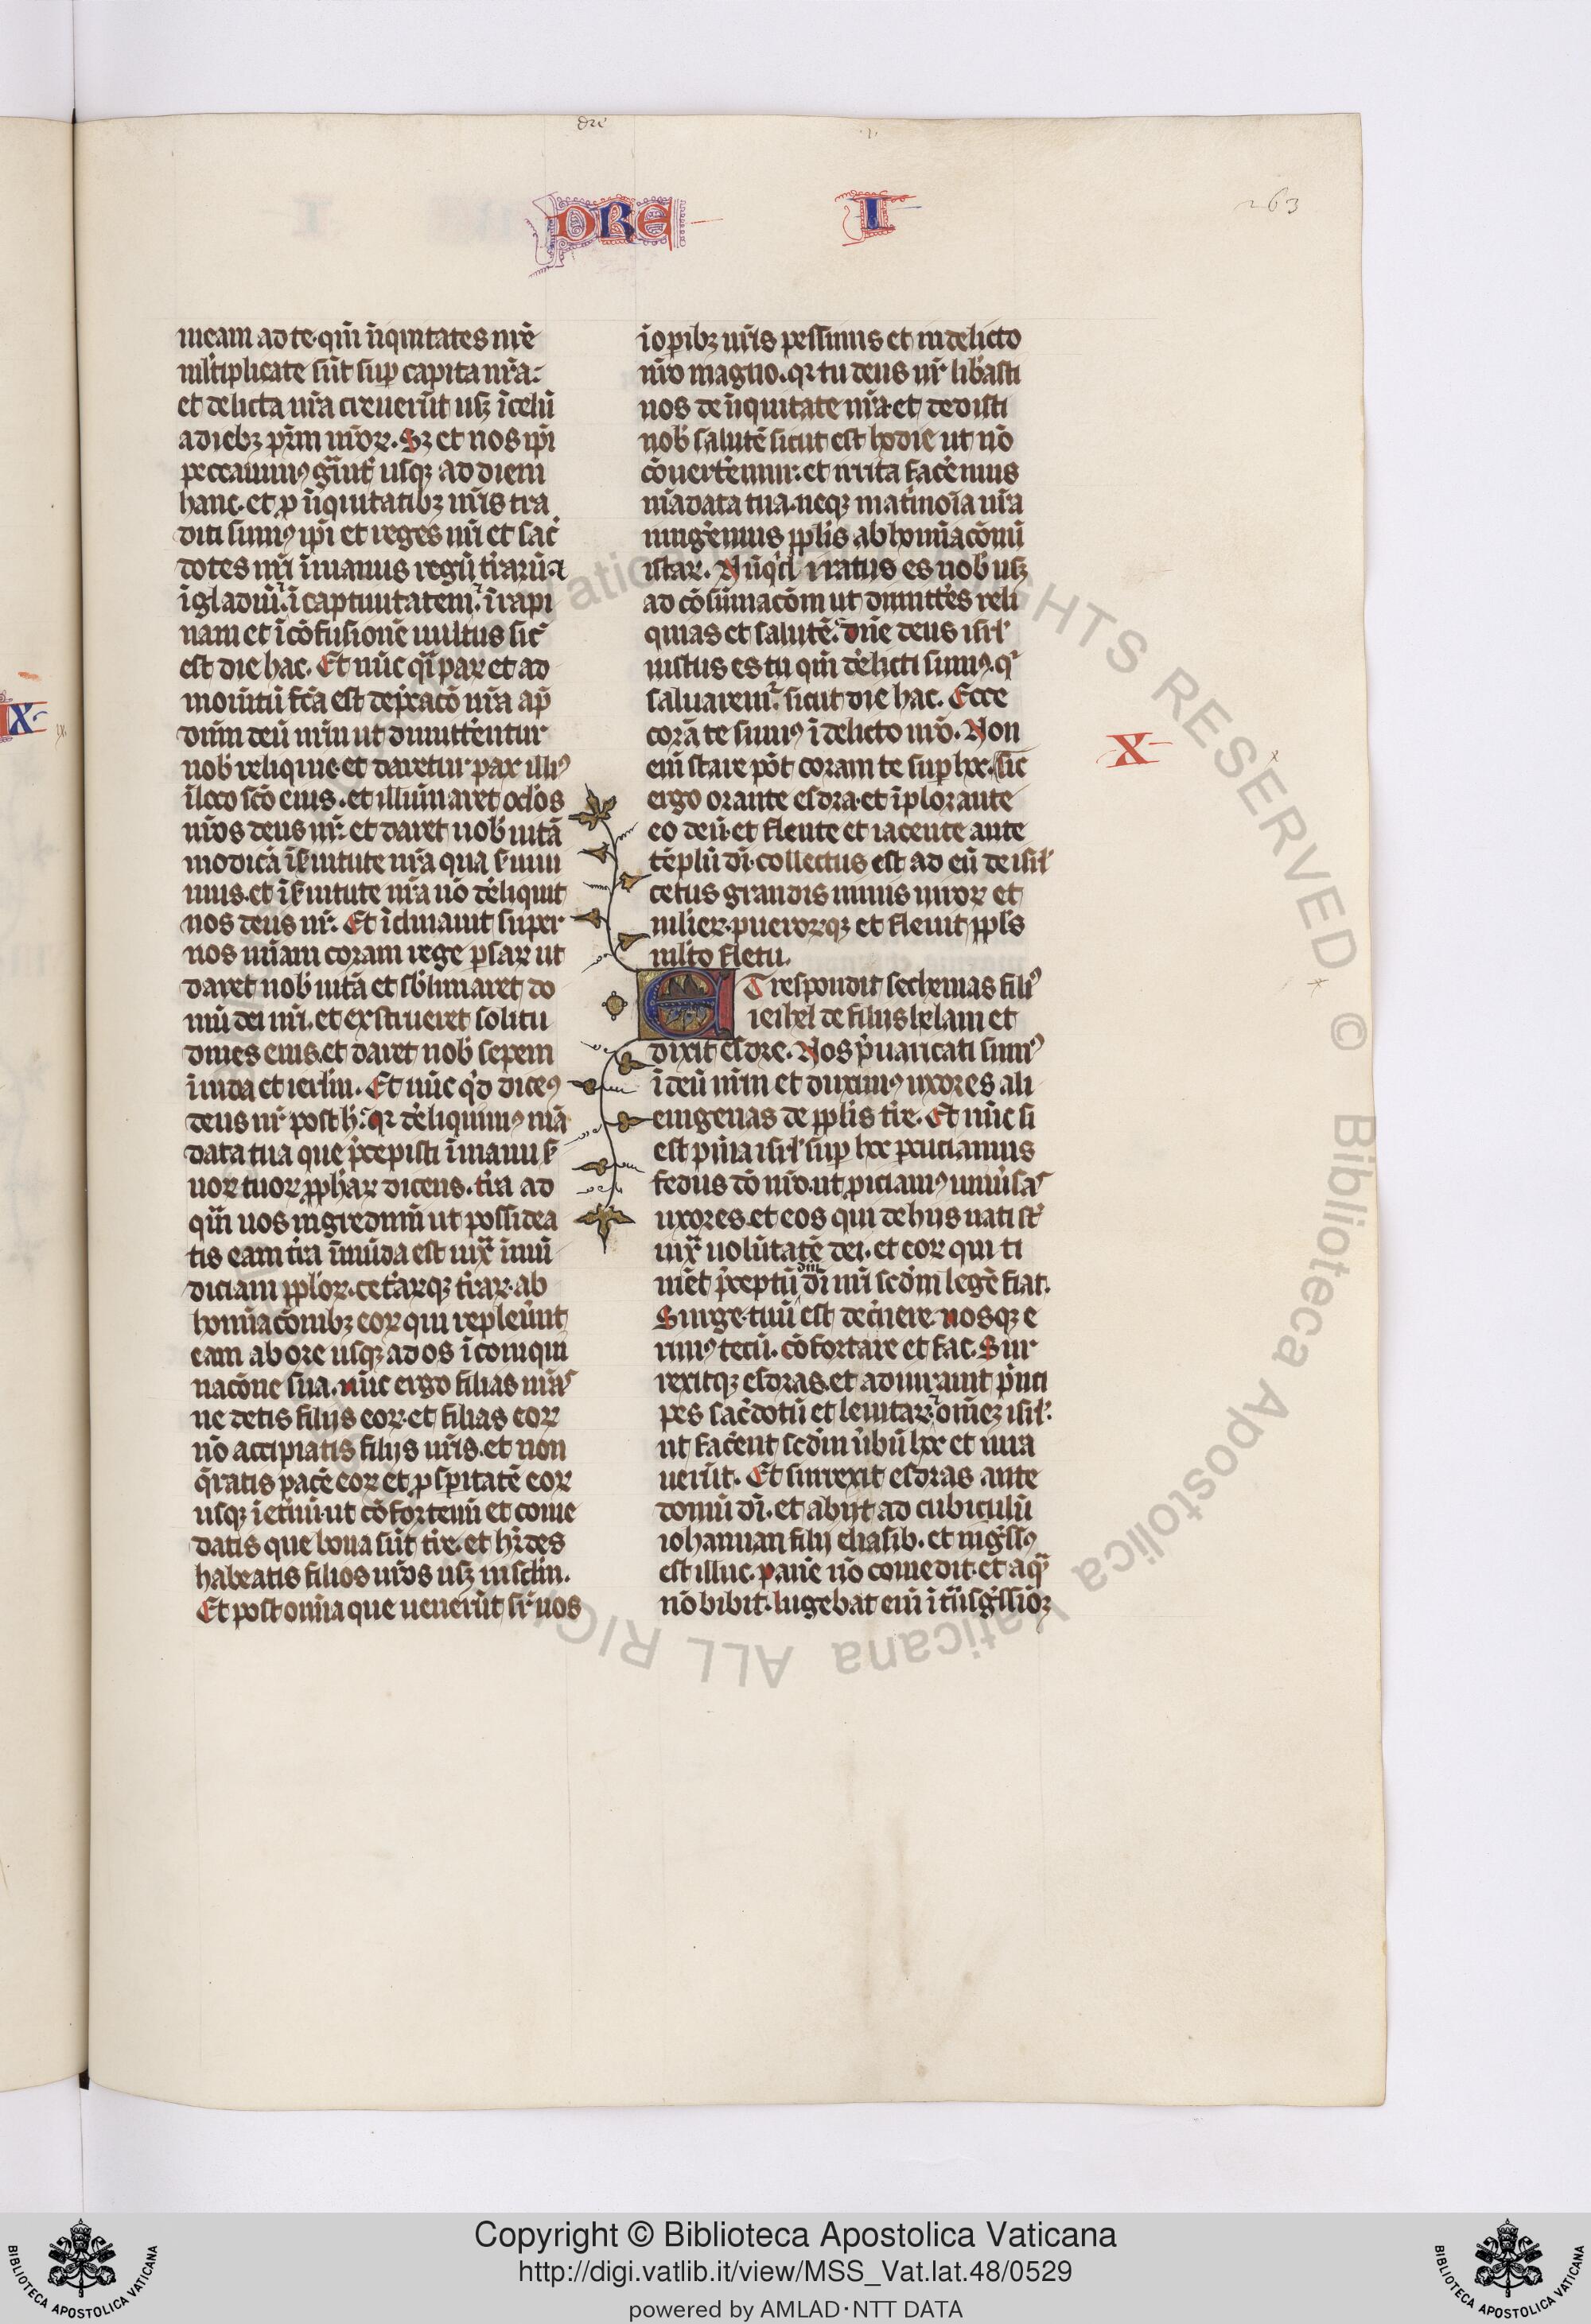 dre
.I.
DRE I
263
meam ad te. qm̄ īiquitates nr̄e
mltiplicate sūt sup capita nr̄a.
et delicta nr̄a creuerūt usqꝫ ī celū
a diebꝫ pr̄m nr̄oꝝ. Sꝫ et nos ipi
peccauimꝰ gͣuit̓ usqꝫ ad diem
hanc. et ꝑ īiquitatibꝫ nr̄is tra
diti sumꝰ ipi et reges nr̄i et sac̓
dotes nr̄i ī manus regū t̓rarū. ⁊
ī gladiū. ī captiuitatem. ī rapi
nam et ī cōfusionē uultus sic̄
est die hac. Et nūc qͣi paꝝ et ad
momtū fc̄a est dep̄cacō nr̄a ap̄
dūm deū nr̄m ut dimitt̓entur
nob̓ reliquie. et daretur pax illiꝰ
ī loco sc̄o eius. et illuīaret oclōs
nr̄os deus nr̄. et daret nob̓ uitā
modicā ī s̓uitute nr̄a qua s̓uim
mus. et ī s̓uitute nr̄a nō d̓eliquit
nos deus nr̄. Et īclinauit super
nos miām coram rege ꝑsaꝝ ut
daret nob̓ uitā et sb̓limaret do
mū dei nr̄i. et exstrueret solitu
dines eius. et daret nob̓ sepem
ī iuda et ierlm̄. Et nūc qͥd dicēꝰ
deus nr̄ post h̓. qꝛ d̓eliquimꝰ mā
data tua que p̄cepisti ī manu s̓
uoꝝ tuoꝝ ꝓphaꝝ dicens. t̓ra ad
qͣm uos ingredimī ut possidea
tis eam t̓ra īmūda est iuxͣ īmū
diciam pplōꝝ. cet̓aꝝqꝫ t̓raꝝ. ab
homīacōnibꝫ eoꝝ qui repleūnt
eam ab ore usqꝫ ad os ī coinqui
nacōne sua. nūc ergo filias nr̄aˢ
ne detis filijs eoꝝ. et filias eoꝝ
nō accipiatis filijs nr̄is. et non
q̄ratis pacē eoꝝ et ꝓsp̓itatē eoꝝ
usqꝫ ī et̓nū. ut cōfortemī et come
datis que bona sūt t̓re. et hr̄des
habeatis filios nr̄os usqꝫ in sclm̄.
Et post om̄ia que uenerūt sr̄ nos
ī op̓ibꝫ nr̄is pessimis et in delicto
nr̄o magno. qꝛ tu deus nr̄ libasti
nos de īiquitate nr̄a. et dedisti
nob̓ salutē sicut est hodie ut nō
cōuert̓emur. et irrita fac̓emus
mādata tua. neqꝫ mat̓imoīa nr̄a
iungemus pplīs abhomīacōnū
istaꝝ. Nūqͥd iratus es nob̓ usqꝫ
ad cōsūmacōm ut dimitt̓es reli
quias et salutē. dn̄e deus isrl̓
iustus es tu qm̄ d̓elicti sumꝰ. qͥ
saluaremͬ. sicut die hac. Ecce
corā te sumꝰ ī delicto nr̄o. Non
enī stare pōt coram te sup hoc. sic
ergo orante esdra. et īplorante
eo deū. et flente et iacente ante
tēplū dī. collectus est ad eū de isrl̓
cetus grandis nimis uiroꝝ et
mlieꝝ. pueroꝝqꝫ et fleuit ppls
mlto fletu.
X
x
ET respondit sechenias filiꝰ
ieihel de filiis helam et
dixit esdre. Nos p̄uaricati sumꝰ
ī deū nr̄m et duximꝰ uxores ali
enigenas de pplīs t̓re. Et nūc si
est pn̄ia isrl̓ sup hoc ꝑcuciamus
fedus dō nr̄o. ut ꝓiciamꝰ uniūsaˢ
uxores. et eos qui de hijs nati st̄
iuxͣ uolūtatē dei. et eoꝝ qui ti
mēt p̄ceptū dm̄ dī nr̄i scdm̄ legē fiat.
Surge. tuū est dec̓nere. nosqꝫ e
rimꝰ tecū. cōfortare et fac. Sur
rexitqꝫ esdras. et adiurauit p̄nci
pes sac̓dotū et leuitaꝝ. om̄ēqꝫ isrl̓.
ut fac̓ent scdm̄ ūbū hoc et iura
uerūt. Et surrexit esdras ante
domū dī. et abijt ad cubiculū
iohannan filij eliasib. et ing̓ssꝰ
est illuc. panē nō comedit. et aqͣ
nō bibit. lugebat enī ī tͣnsg̓ssiōꝫ
IX
ix.
Copyright © Biblioteca Apostolica Vaticana
http://digi.vatlib.it/view/MSS_Vat.lat.48/0529
powered by AMLAD·NTT DATA
BIBLIOTECA APOSTOLICA VATICANA
BIBLIOTECA APOSTOLICA VATICANA